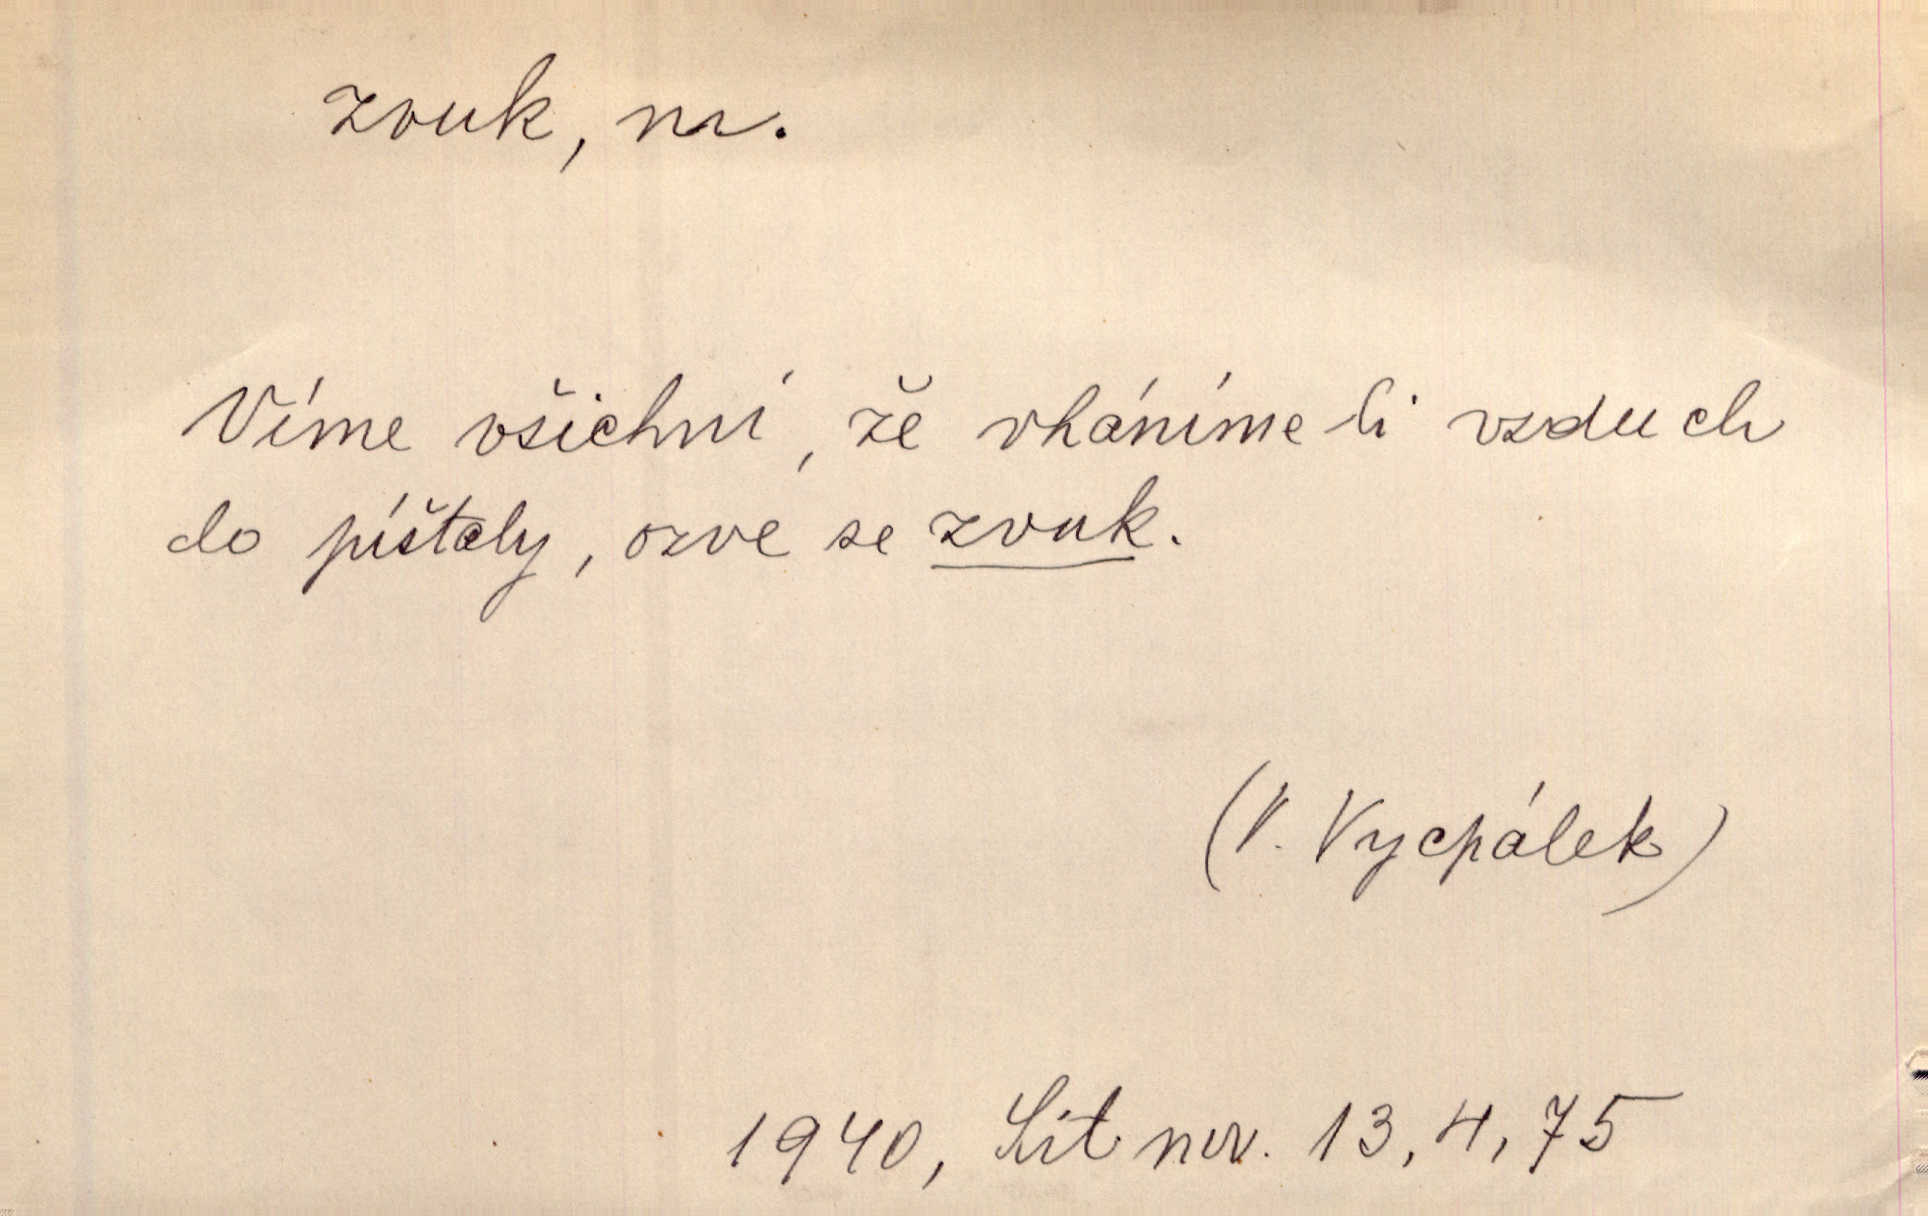 zvuk, m.
Víme všichni, že vháníme-li vzduch
do píšťaly, ozve se zvuk.
(V. Vycpálek)
1940, Lit nov. 13, 4, 75